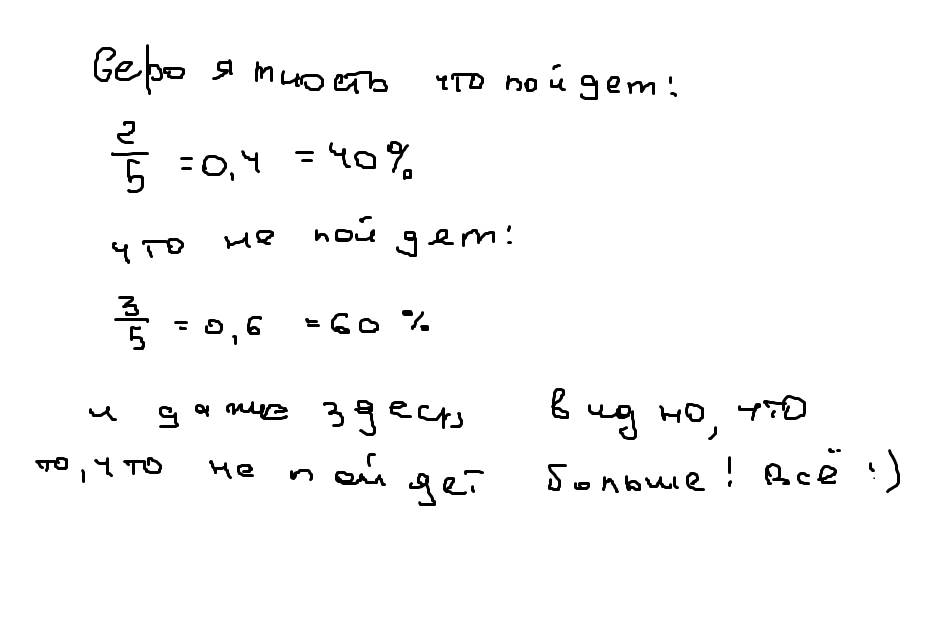 Вероятность что пойдет:
2/5 = 0,4 = 40%
что не пойдет:
3/5 = 0,6 = 60 %
и даже здесь видно, что
то, что не пойдет больше! Всё :)